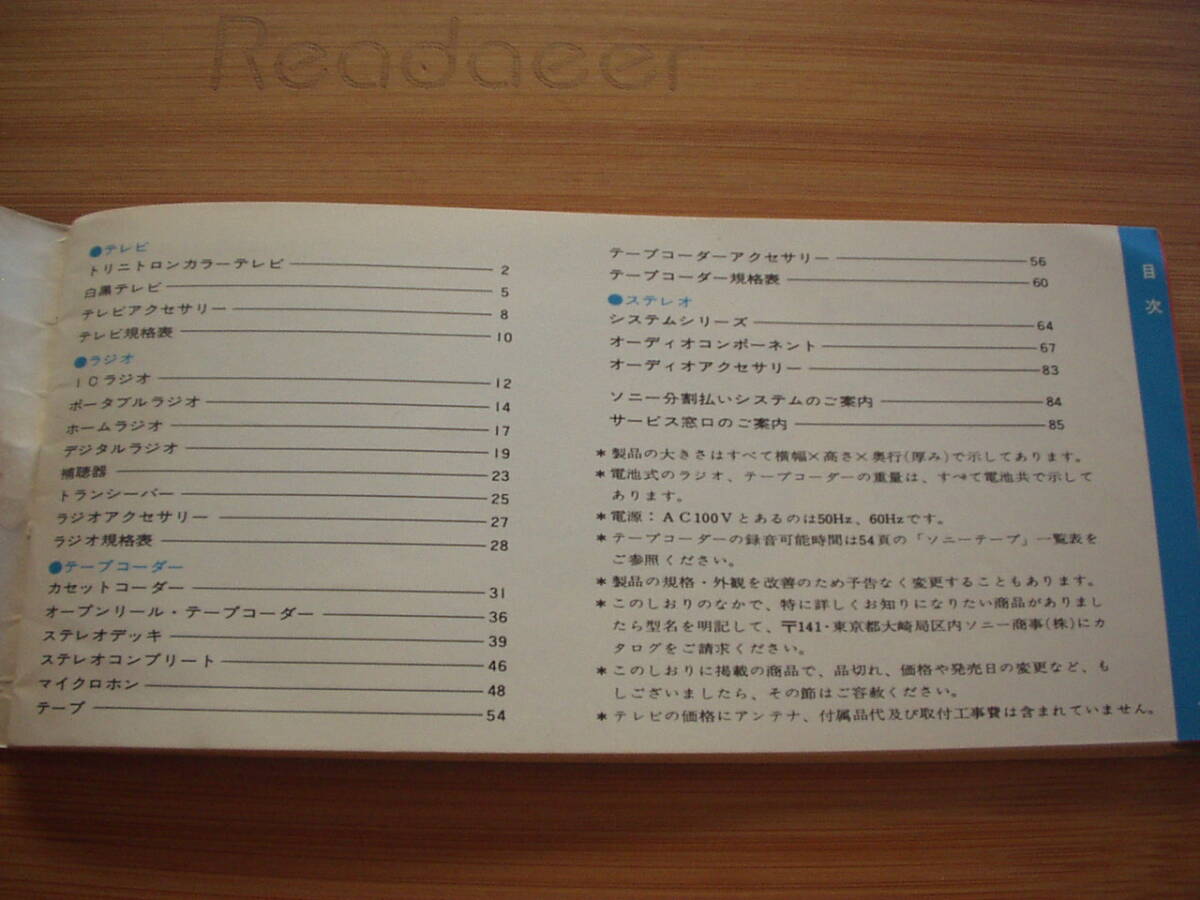 Readaeer
●テレビ
トリニトロンカラーテレビ 2
白黒テレビ 5
テレビアクセサリー 8
テレビ規格表 10
●ラジオ
ICラジオ 12
ポータブルラジオ 14
ホームラジオ 17
デジタルラジオ 19
補聴器 23
トランシーバー 25
ラジオアクセサリー 27
ラジオ規格表 28
●テープコーダー
カセットコーダー 31
オープンリール・テープコーダー 36
ステレオデッキ 39
ステレオコンプリート 46
マイクロホン 48
テープ 54
テープコーダーアクセサリー 56
テープコーダー規格表 60
●ステレオ
システムシリーズ 64
オーディオコンポーネント 67
オーディオアクセサリー 83
ソニー分割払いシステムのご案内 84
サービス窓口のご案内 85
＊製品の大きさはすべて横幅×高さ×奥行(厚み)で示してあります。
＊電池式のラジオ、テープコーダーの重量は、すべて電池共で示して
あります。
＊電源：AC100Vとあるのは50Hz、60Hzです。
＊テープコーダーの録音可能時間は54頁の「ソニーテープ」一覧表を
ご参照ください。
＊製品の規格・外観を改善のため予告なく変更することもあります。
＊このしおりのなかで、特に詳しくお知りになりたい商品がありまし
たら型名を明記して、〒141・東京都大崎局区内ソニー商事(株)にカ
タログをご請求ください。
＊このしおりに掲載の商品で、品切れ、価格や発売日の変更など、も
しございましたら、その節はご容赦ください。
＊テレビの価格にアンテナ、付属品代及び取付工事費は含まれていません。
目次